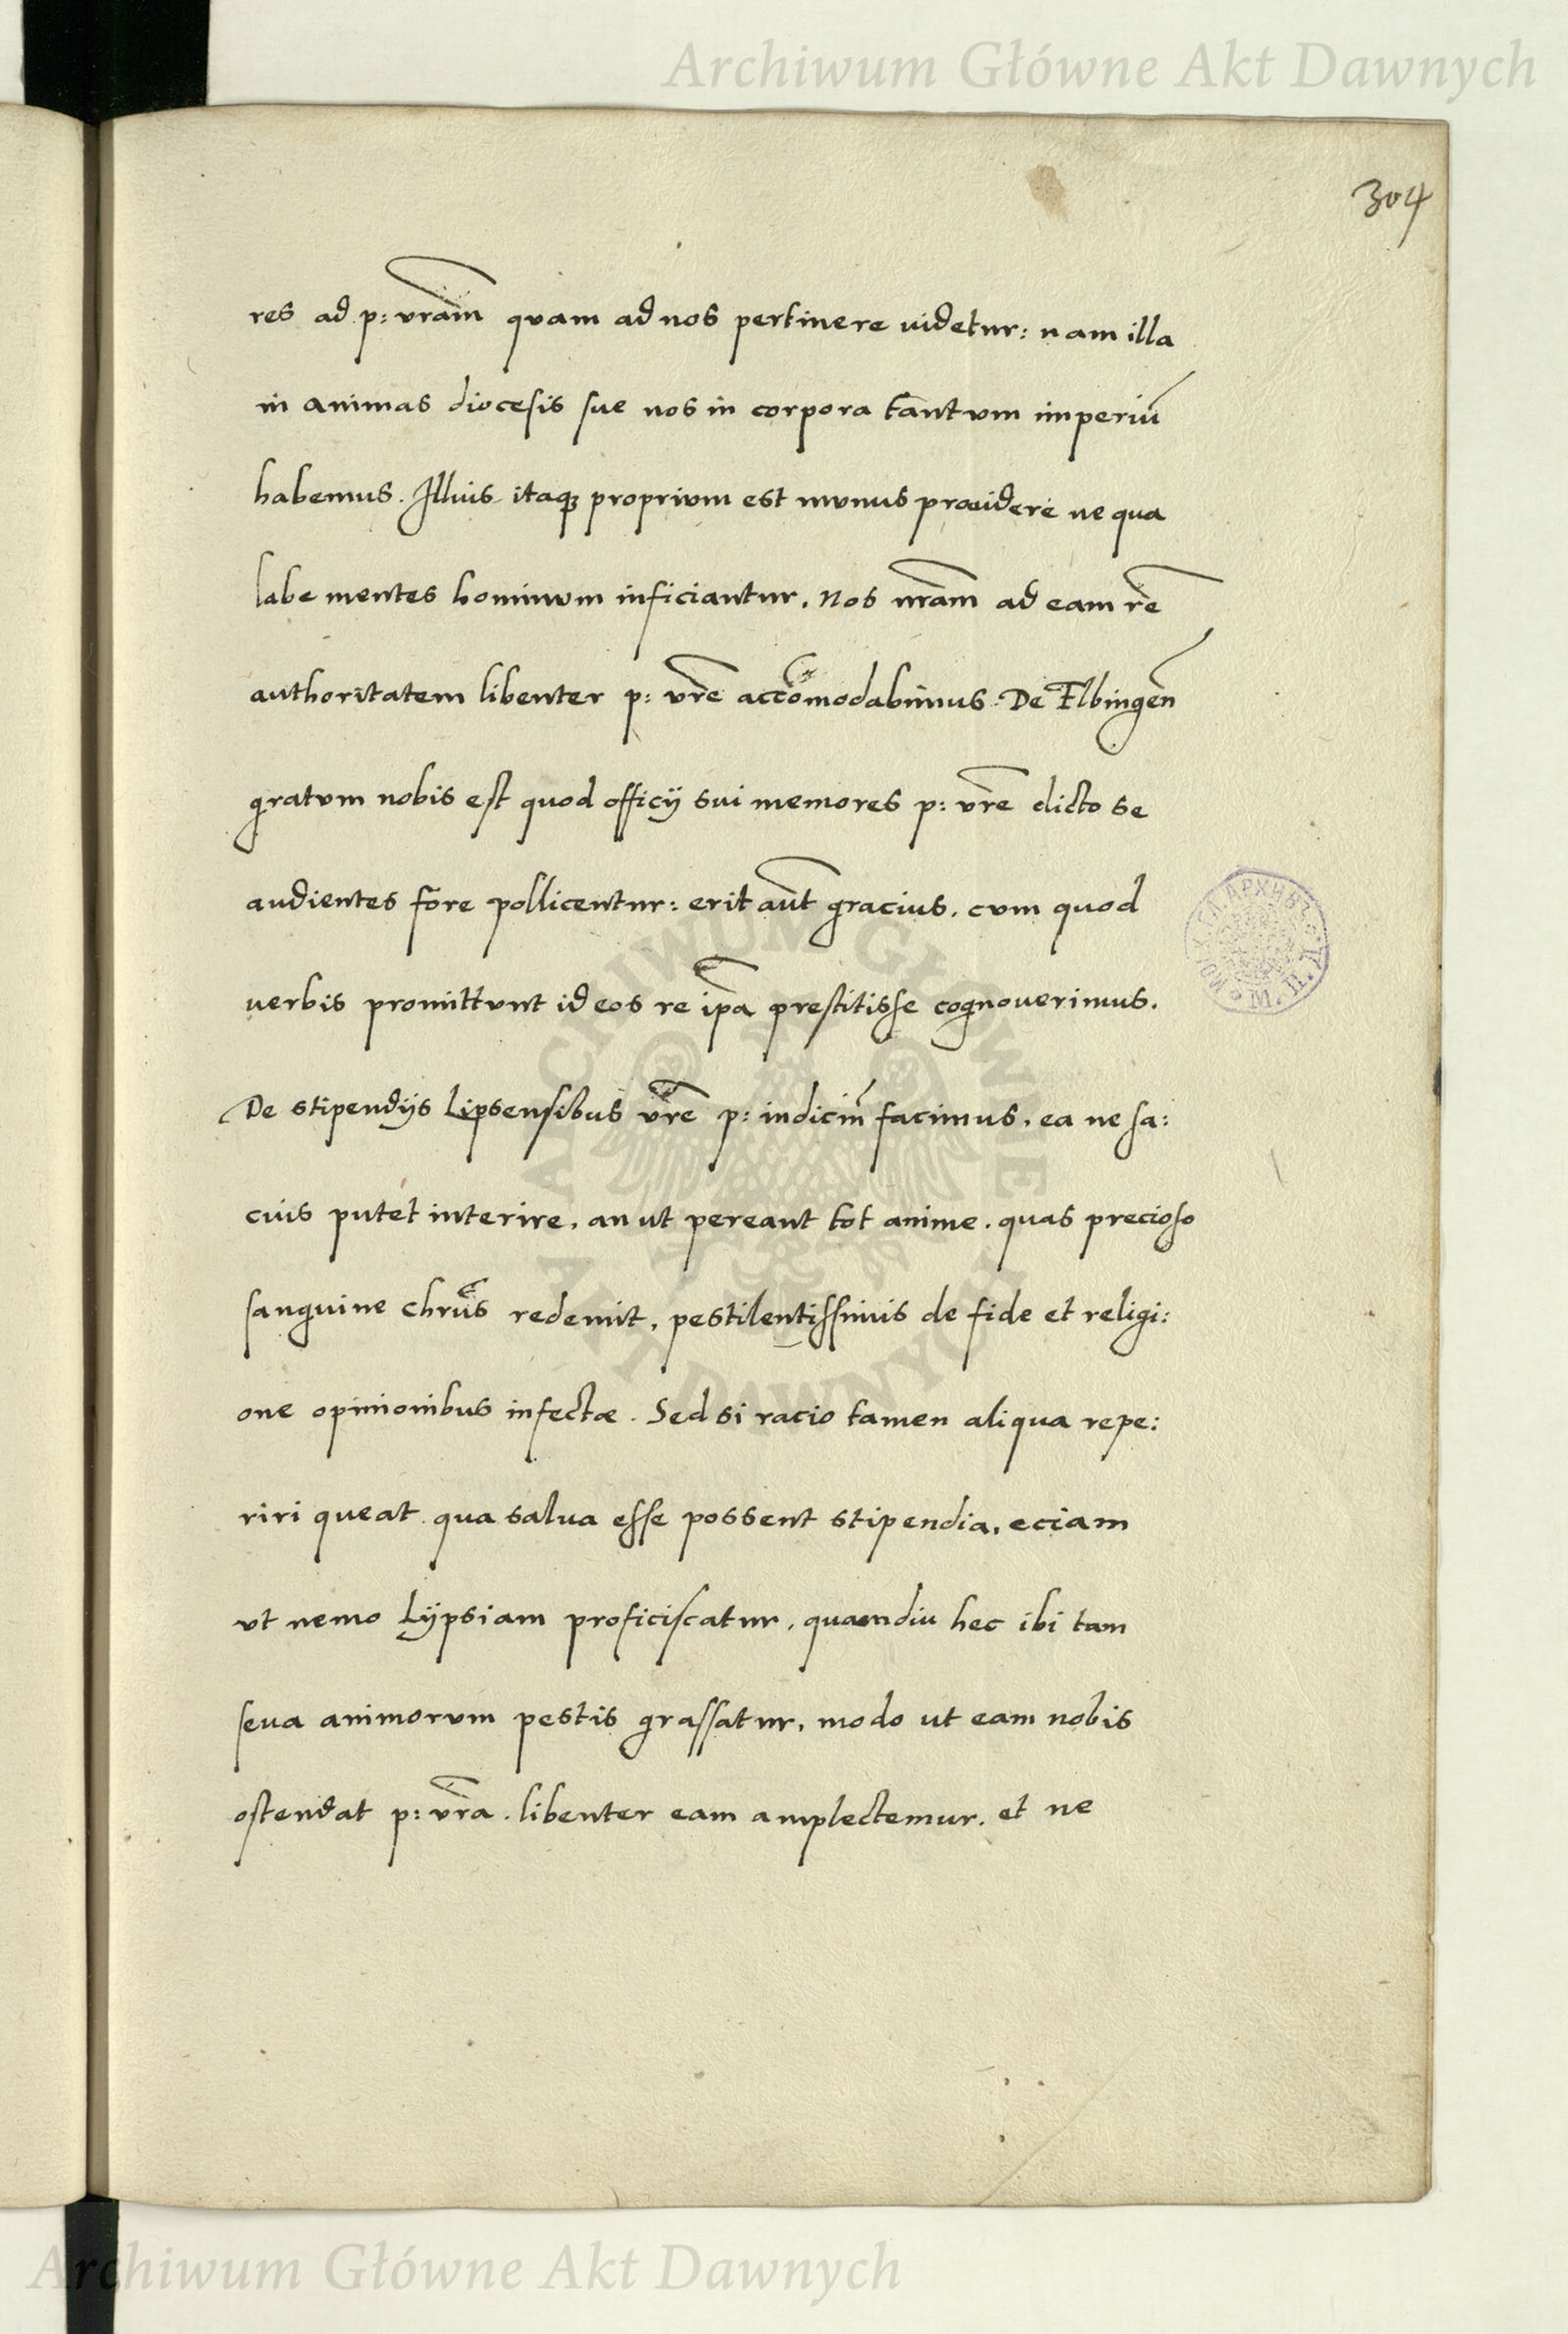 Archiwum Główne Akt Dawnych
304
res ad p: vr̃am quam ad nos pertinere uidetur: nam illa
in animas diocesis sue nos in corpora tantum imperiũ
habemus. Illius itaq; proprium est munus prouidere ne qua
labe mentes hominum inficiantur. Nos nr̃am ad eam rẽ
authoritatem libenter p: vr̃e accõmodabimus. De Elbingeñ
gratum nobis est quod officij sui memores p: vr̃e dicto se
audientes fore pollicentur: erit aũt gracius, cum quod
verbis promittunt id eos re ip̃a prestitisse cognouerimus.
De stipendijs Lipsensibus vr̃e p: indiciũ facimus, ea ne sa:
cius putet interire, an ut pereant tot anime, quas precioso
sanguine Chrũs redemit, pestilentissimis de fide et religi:
one opinionibus infectæ. Sed si racio tamen aliqua repe:
riri queat qua salua esse possent stipendia, eciam
ut nemo Lÿpsiam proficiscatur, quamdiu hec ibi tam
seua animorum pestis grassatur, modo ut eam nobis
ostendat p: vr̃a. libenter eam amplectemur. et ne
ARCHIWUM GŁÓWNE
AKT DAWNYCH
Archiwum Główne Akt Dawnych